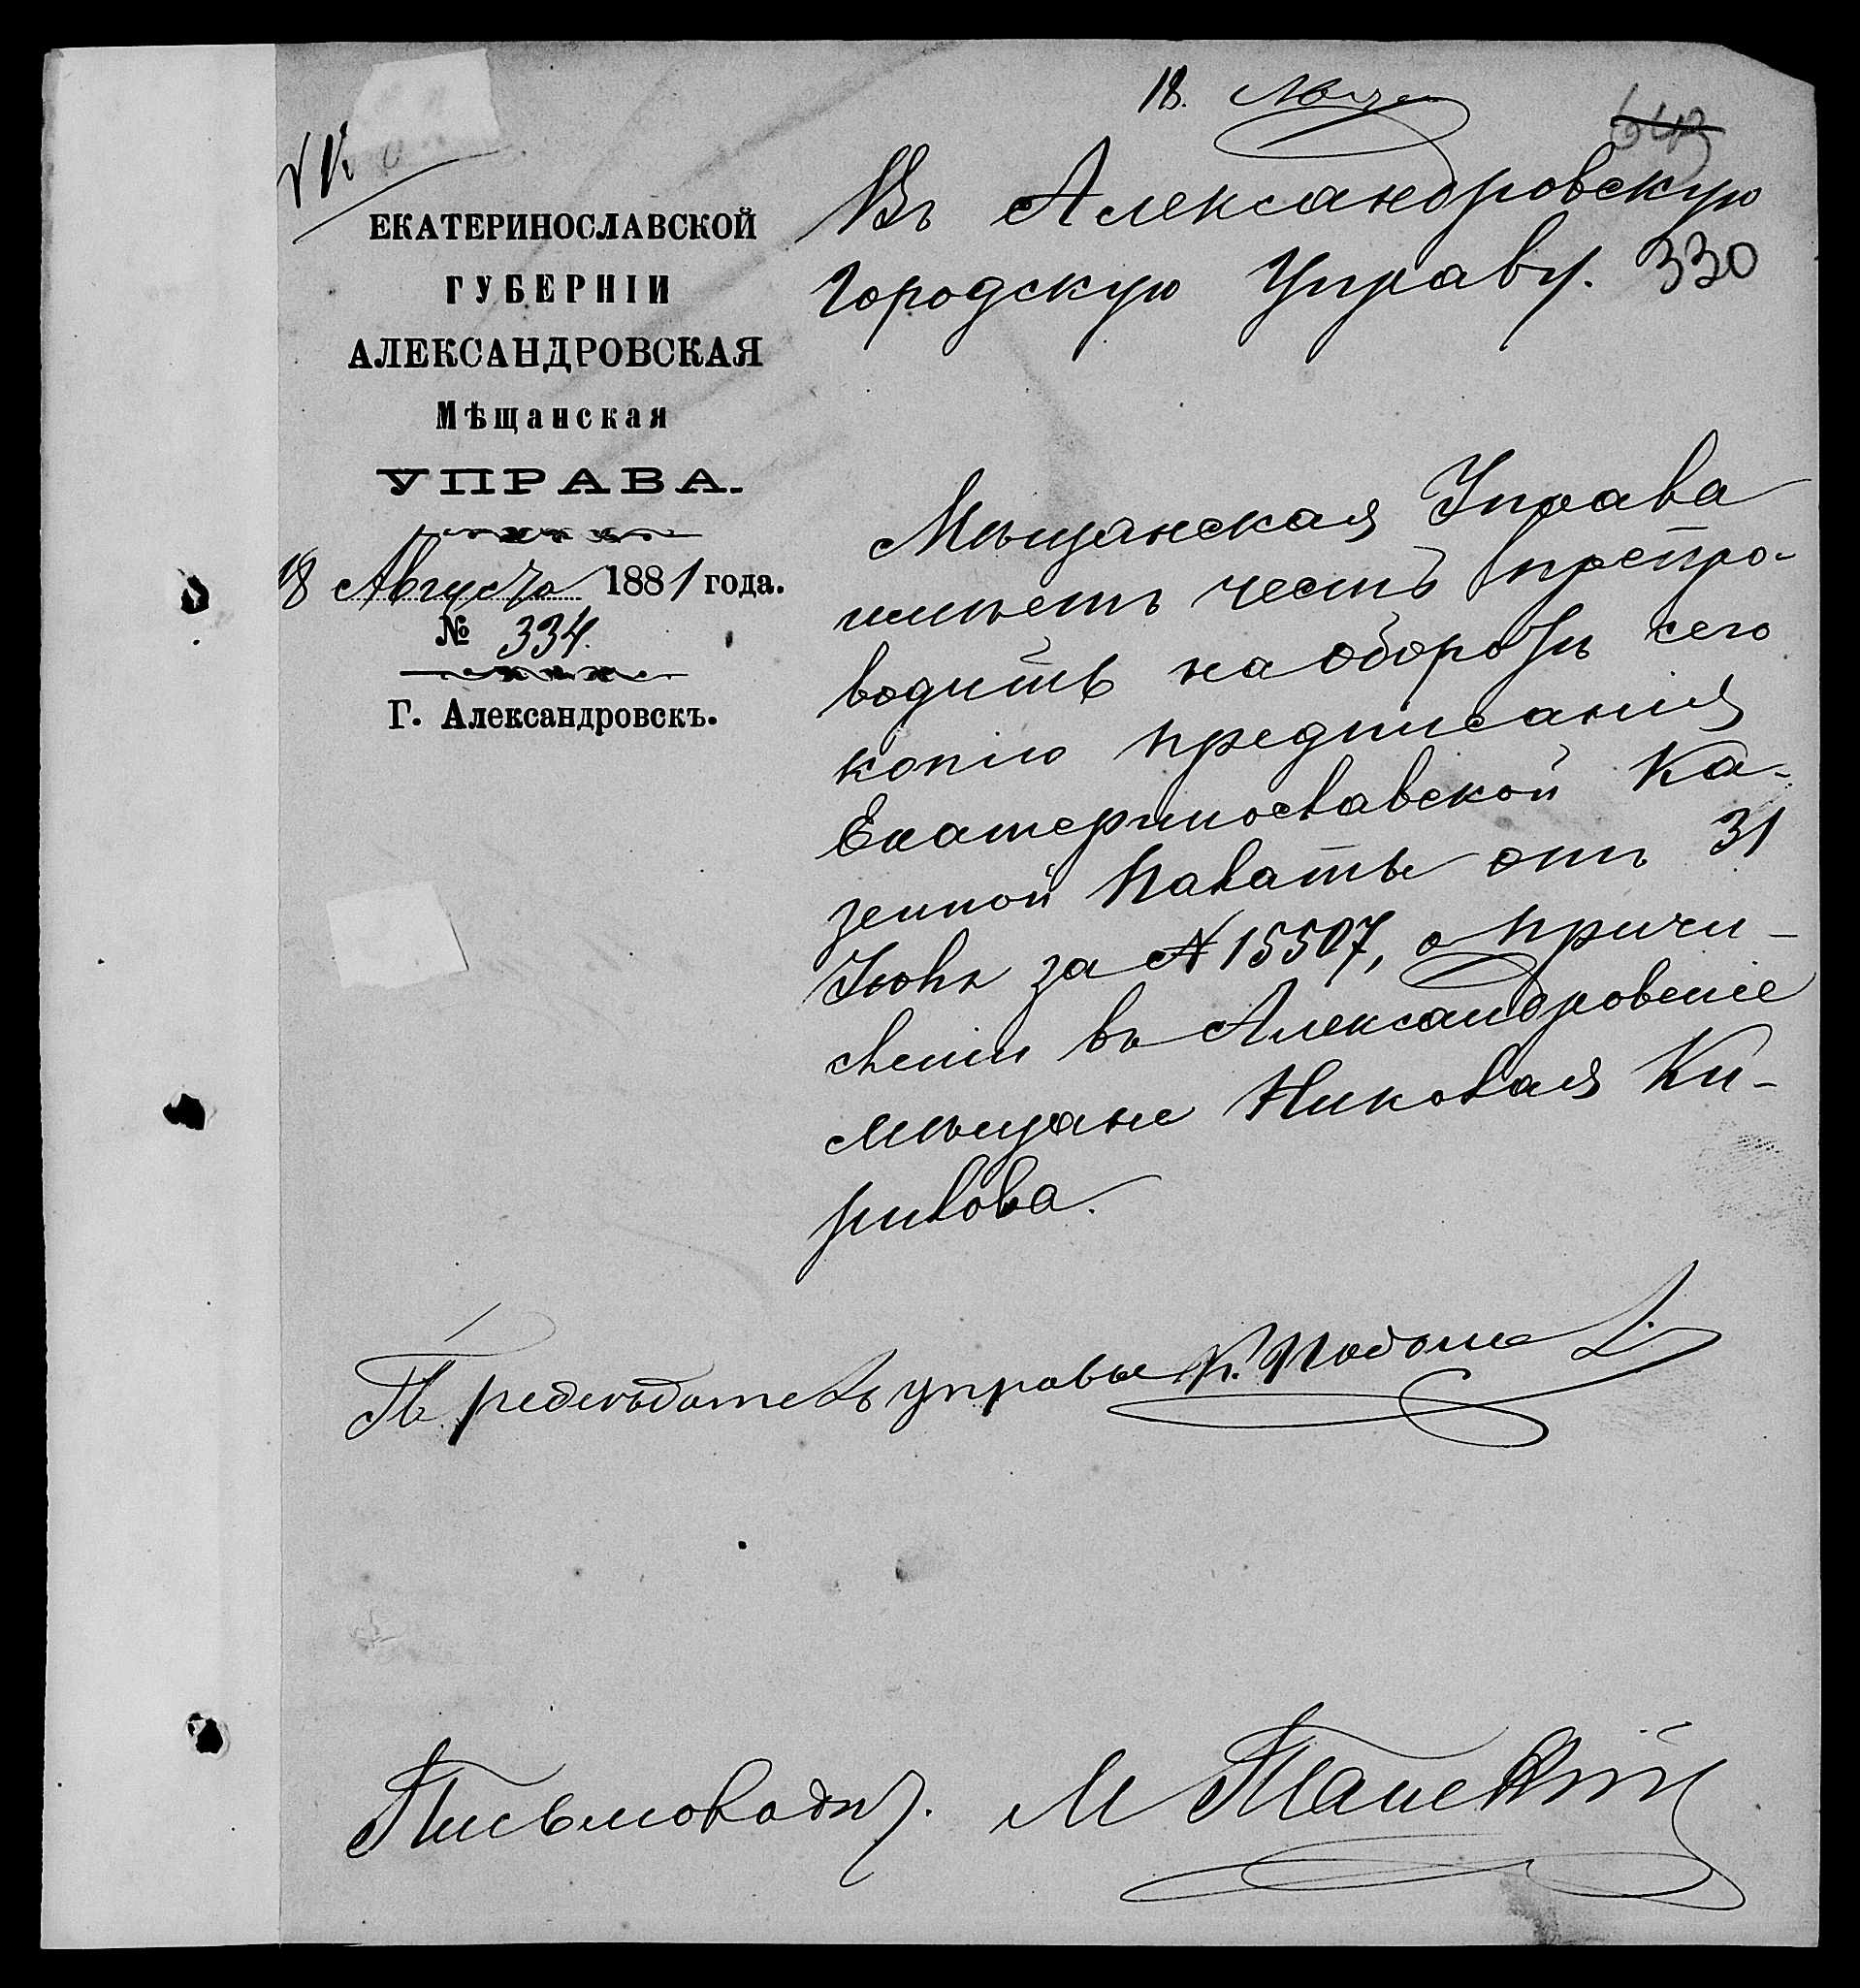 18. Авгу
330
ЕКАТЕРИНОСЛАВСКОЙ
ГУБЕРНІИ
АЛЕКСАНДРОВСКАЯ
Мѣщанская
УПРАВА.
18 Августа 1881 года.
№ 334.
Г. Александровскъ.
Въ Александровскую
Городскую Управу.
Мѣщанская Управа
имѣетъ честь препро-
водить на оборотѣ сего
копію предписанія
Екатеринославской Ка-
зенной Палаты отъ 31
Іюля за № 15507, о причи-
сленіи въ Александровскіе
мѣщане Николая Ки-
рилова.
Предсѣдатель управы К.
Письмовод. М